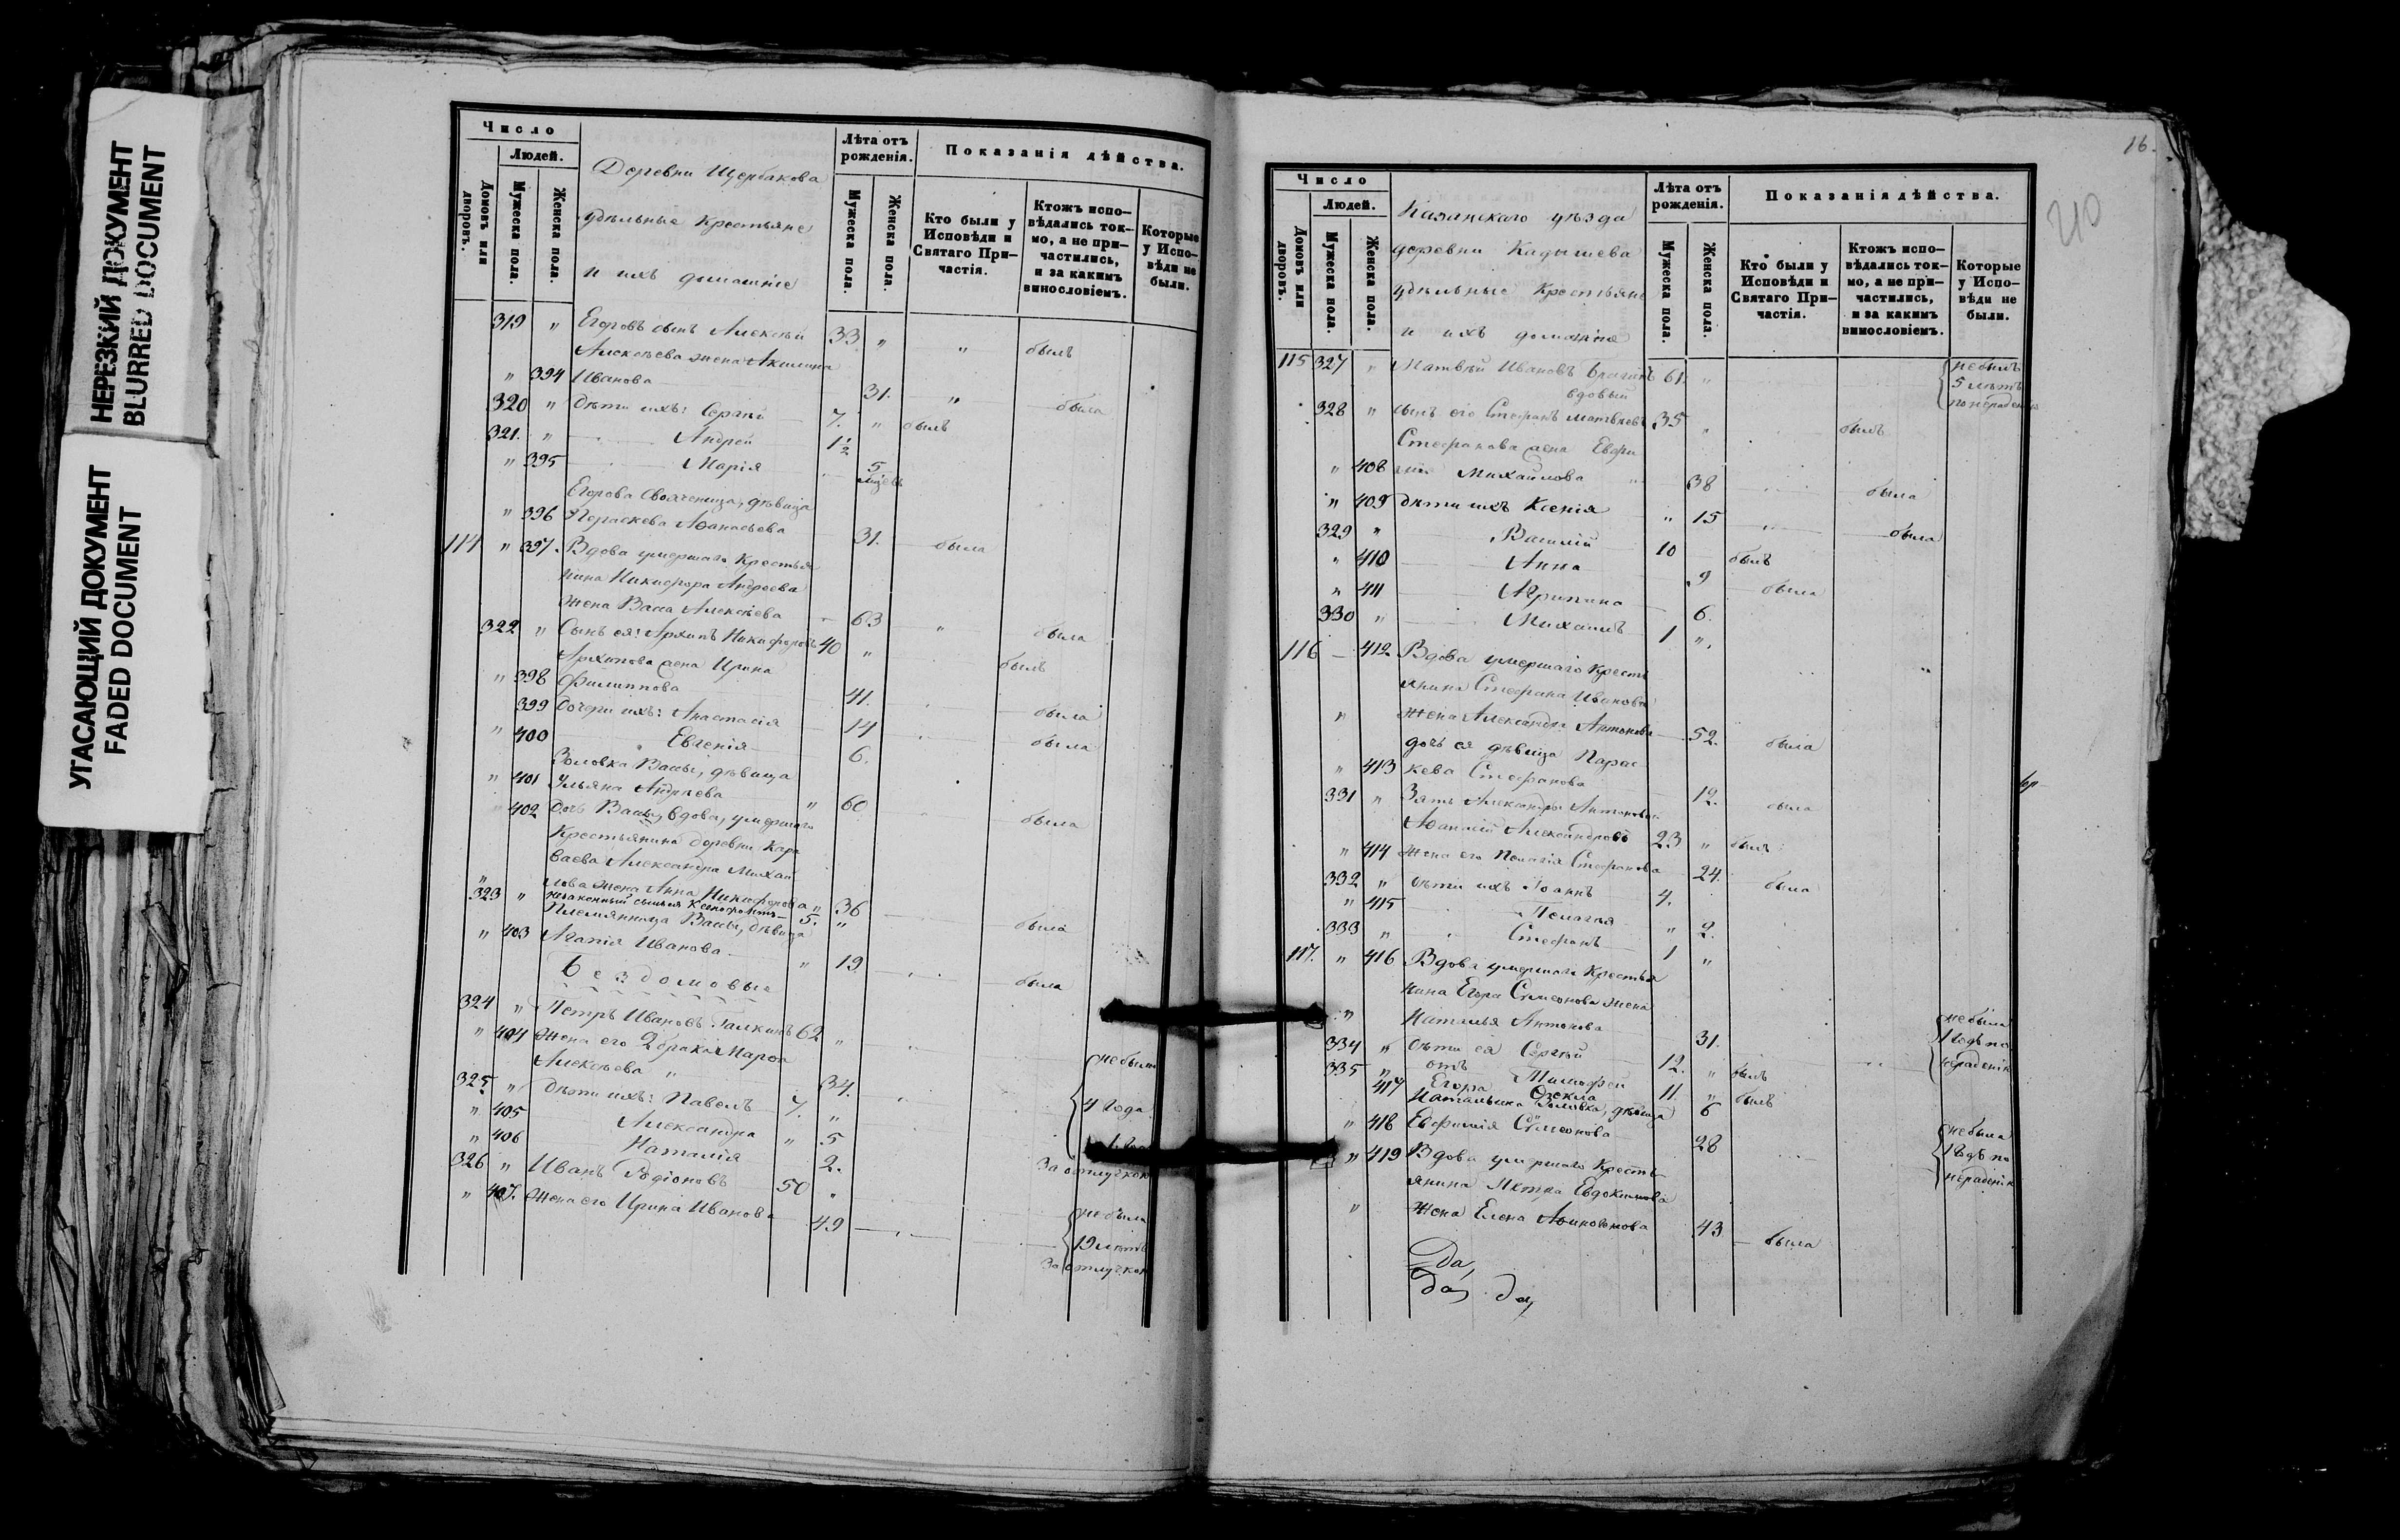 НЕРЕЗКИЙ ДОКУМЕНТ
BLURRED DOCUMENT
УГАСАЮЩИЙ ДОКУМЕНТ
FADED DOCUMENT
Число
Людей.
Домовъ или дворовъ.
Мужеска пола.
Женска пола.
Деревни Щербакова
удѣльные крестьяне
и ихъ домашніе
Лѣта отъ рожденія.
Мужеска пола.
Женска пола.
Показанія дѣйства.
Кто были у Исповѣди и Святаго При-частія.
Ктожъ испо-вѣдались ток-мо, а не при-частились, и за какимъ винословіемъ.
Которые у Испо-вѣди не были.
319 " Егоровъ сынъ Алексѣй 33 " " былъ
Алексѣева жена Акилина
" 394 Иванова 31. " была
320 " дѣти ихъ: Сергѣй 7. " былъ
321. " Андрей 1½
" 395 Марія 5 мѣсяц
Егорова свояченица, дѣвица
" 396 Параскева Аѳанасьева 31. была
114 " 397. Вдова умершаго крестья
нина Никифора Андреева
жена Васса Алексѣева 63 " была
322 " Сынъ ея: Архипъ Никифоровъ 40 " былъ
Архипова жена Ирина
" 398 Филиппова 41. была
399 дочери ихъ: Анастасія 14 была
" 400 Евгенія 6.
Золовка Вассы, дѣвица
" 401 Ульяна Андреева " 60 была
" 402 дочь Вассы, вдова, умершаго
крестьянина деревни Кара
ваева Александра Михай
" лова жена Анна Никифорова " 36 была
323 " незаконный сынъ ея Ксенофонтъ 5. "
Племянница Вассы, дѣвица
" 403 Агапія Иванова " 19 была
Бездомовые
324 " Петръ Ивановъ Галкинъ 62 "
" 404 жена его 2 брака Марѳа
Алексѣева " 34. не были
325 " дѣти ихъ: Павелъ 7. " 4 года
" 405 Александра " 5
" 406 Наталія 2. за отлучкою
326 " Иванъ Родіоновъ 50 "
" 407. жена его Ирина Иванова 49 не были
19 лѣтъ
за отлучкою
16.
210
Число
Людей.
Домовъ или дворовъ.
Мужеска пола.
Женска пола.
Казанскаго уѣзда
деревни Кадышева
удѣльные крестьяне
и ихъ домашніе
Лѣта отъ рожденія.
Мужеска пола.
Женска пола.
Показанія дѣйства.
Кто были у Исповѣди и Святаго При-частія.
Ктожъ испо-вѣдались ток-мо, а не при-частились, и за какимъ винословіемъ.
Которые у Испо-вѣди не были.
115 327 " Матвѣй Ивановъ 61. " не былъ
вдовый 5 лѣтъ
по нерадѣнію
328 " сынъ его Стефанъ Матвѣевъ 35 " былъ
Стефанова жена Евфи
" 408 мія Михайлова 38 была
" 409 дѣти ихъ Ксенія " 15 была
329 " Василій 10 былъ
" 410 Анна 9 была
" 411 Агрипина 6.
330 " Михаилъ 1 "
116 — 412 Вдова умершаго кресть
янина Стефана Иванова
" жена Александра Антонова 52. была
дочь ея дѣвица Парас
" 413 кева Стефанова 12. была
331 " Зять Александры Антоновой
Аѳанасій Александровъ 23 " былъ
" 414 жена его Пелагія Стефанова 24. была
332 " дѣти ихъ Іоаннъ 4.
" 415 Пелагія " 2.
333 " Стефанъ 1 "
117. " 416 Вдова умершаго крестья
нина Егора Симеонова жена
" Наталья Антонова 31. не была
1 годъ по
нерадѣнію
334 " дѣти ея Сергѣй 12. " былъ
335 " отъ Тимофей 11. " былъ
417 Егора Ѳекла 6
Натальина золовка, дѣвица
" 418 Евфимія Симеонова 28 не была
1 годъ по
нерадѣнію
" 419 Вдова умершаго кресть
янина Петра Евдокимова
" жена Елена 43 была
Да,
да, да,